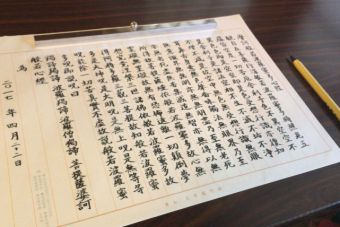 摩訶般若波羅蜜多心經
觀自在菩薩行深般若波羅蜜多時照見五
蘊皆空度一切苦厄舍利子色不異空空不
異色色即是空空即是色受想行識亦復如
是舍利子是諸法空相不生不滅不垢不淨
不增不減是故空中無色無受想行識無眼
耳鼻舌身意無色聲香味觸法無眼界乃至
無意識界無無明亦無無明盡乃至無老死
亦無老死盡無苦集滅道無智亦無得以無
所得故菩提薩埵依般若波羅蜜多故心無
罣礙無罣礙故無有恐怖遠離一切顛倒夢
想究竟涅槃三世諸佛依般若波羅蜜多故
得阿耨多羅三藐三菩提故知般若波羅蜜
多是大神呪是大明呪是無上呪是無等等
呪能除一切苦真實不虛故說般若波羅蜜
多呪即說呪曰
揭諦揭諦 波羅揭諦 波羅僧揭諦 菩提薩婆訶
般若心經
為
二〇一七年 四月二十二日